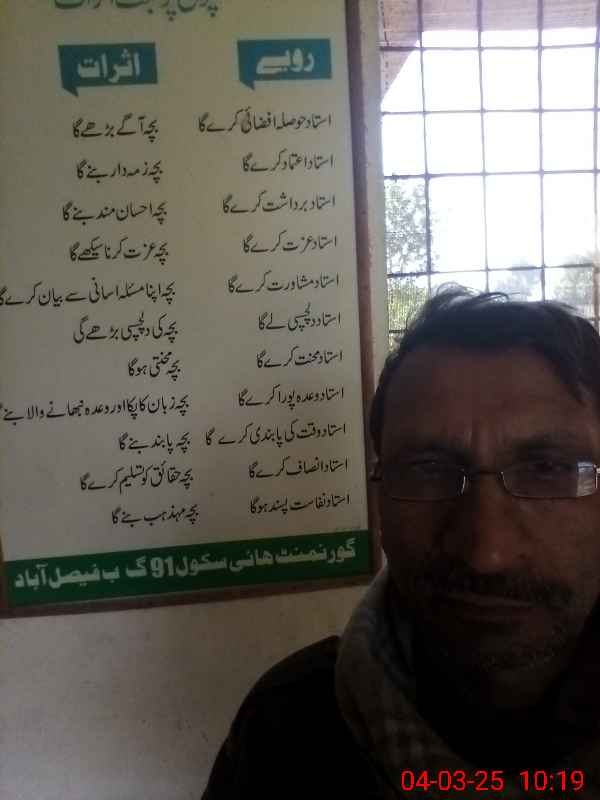 پر مثبت اثرات
رویے اثرات
استاد حوصلہ افضائی کرے گا بچہ آگے بڑھے گا
استاد اعتماد کرے گا بچہ زمہ دار بنے گا
استاد برداشت کرے گا بچہ احسان مند بنے گا
استاد عزت کرے گا بچہ عزت کرنا سیکھے گا
استاد مشاورت کرے گا بچہ اپنا مسئلہ اسانی سے بیان کرے گا
استاد دلچسپی لے گا بچہ کی دلچسپی بڑھے گی
استاد محنت کرے گا بچہ محنتی ہوگا
استاد وعدہ پورا کرے گا بچہ زبان کا پکا اور وعدہ نبھانے والا بنے
استاد وقت کی پابندی کرے گا بچہ پابند بنے گا
استاد انصاف کرے گا بچہ حقائق کو تسلیم کرے گا
استاد نفاست پسند ہوگا بچہ مہذہب بنے گا
گورنمنٹ ھائی سکول 91 گ ب فیصل آباد
04-03-25 10:19